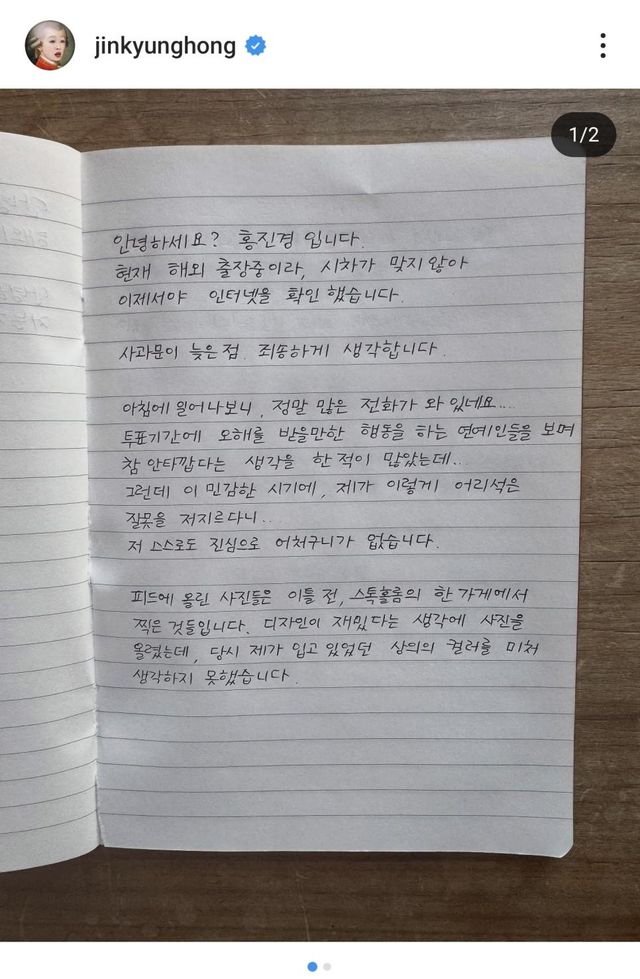 jinkyunghong
1/2
안녕하세요? 홍진경 입니다.
현재 해외 출장중이라, 시차가 맞지 않아
이제서야 인터넷을 확인 했습니다.
사과문이 늦은점 죄송하게 생각합니다.
아침에 일어나보니, 정말 많은 전화가 와 있네요....
투표기간에 오해를 받을만한 행동을 하는 연예인들을 보며
참 안타깝다는 생각을 한 적이 많았는데...
그런데 이 민감한 시기에, 제가 이렇게 어리석은
잘못을 저지르다니...
저 스스로도 진심으로 어처구니가 없습니다.
피드에 올린 사진들은 이틀 전, 스톡홀롬의 한 가게에서
찍은 것들입니다. 디자인이 재밌다는 생각에 사진을
올렸는데, 당시 제가 입고 있었던 상의의 컬러를 미처
생각하지 못했습니다.